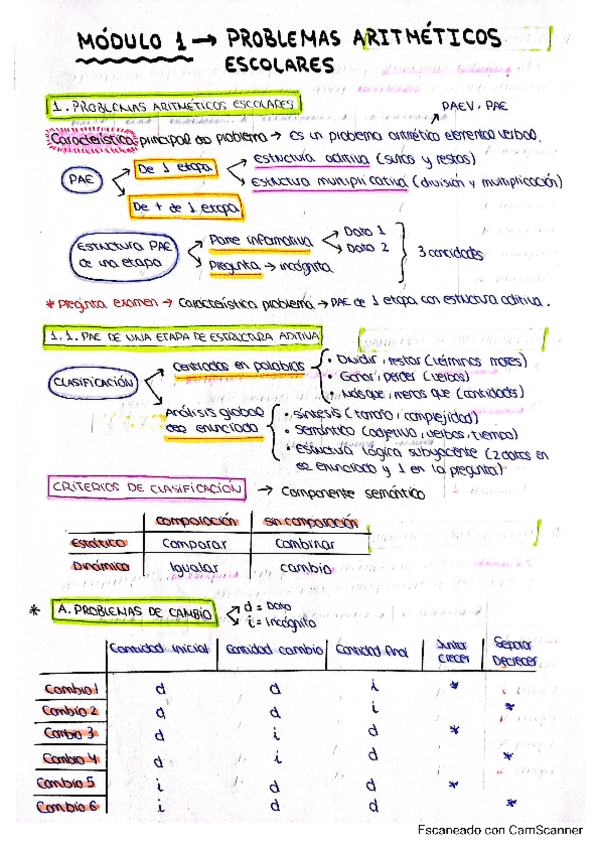 MÓDULO 1 → PROBLEMAS ARITMÉTICOS
ESCOLARES
1. PROBLEMAS ARITMÉTICOS ESCOLARES
PAEV, PAE
Característica principal do problema → es un problema aritmético elemental verbal.
PAE
De 1 etapa
Estructura aditiva (sumas y restas)
Estructura multiplicativa (división y multiplicación)
De + de 1 etapa
ESTRUCTURA PAE
de una etapa
Parte informativa
Dato 1
Dato 2
Pregunta → incógnita
3 cantidades
* Pregunta examen → Característica problema → PAE de 1 etapa con estructura aditiva.
1.1. PAE DE UNA ETAPA DE ESTRUCTURA ADITIVA
CLASIFICACIÓN
Centrados en palabras
• Dividir, restar (términos mates)
• Ganar, perder (verbos)
• Más que, menos que (cantidades)
Análisis global
del enunciado
• Síntesis (tamaño, complejidad)
• Semántico (adjetivo, verbos, tiempo)
• Estructura lógica subyacente (2 datos en
el enunciado y 1 en la pregunta)
CRITERIOS DE CLASIFICACIÓN → Componente semántico
comparación sin comparación
Estático Comparar Combinar
Dinámico Igualar cambio
* A. PROBLEMAS DE CAMBIO
d = Dato
i = Incógnita
Cantidad inicial Cantidad cambio Cantidad final Juntar crecer Separar Decrecer
Cambio 1 d d i *
Cambio 2 d d i *
Cambio 3 d i d *
Cambio 4 d i d *
Cambio 5 i d d *
Cambio 6 i d d *
Escaneado con CamScanner